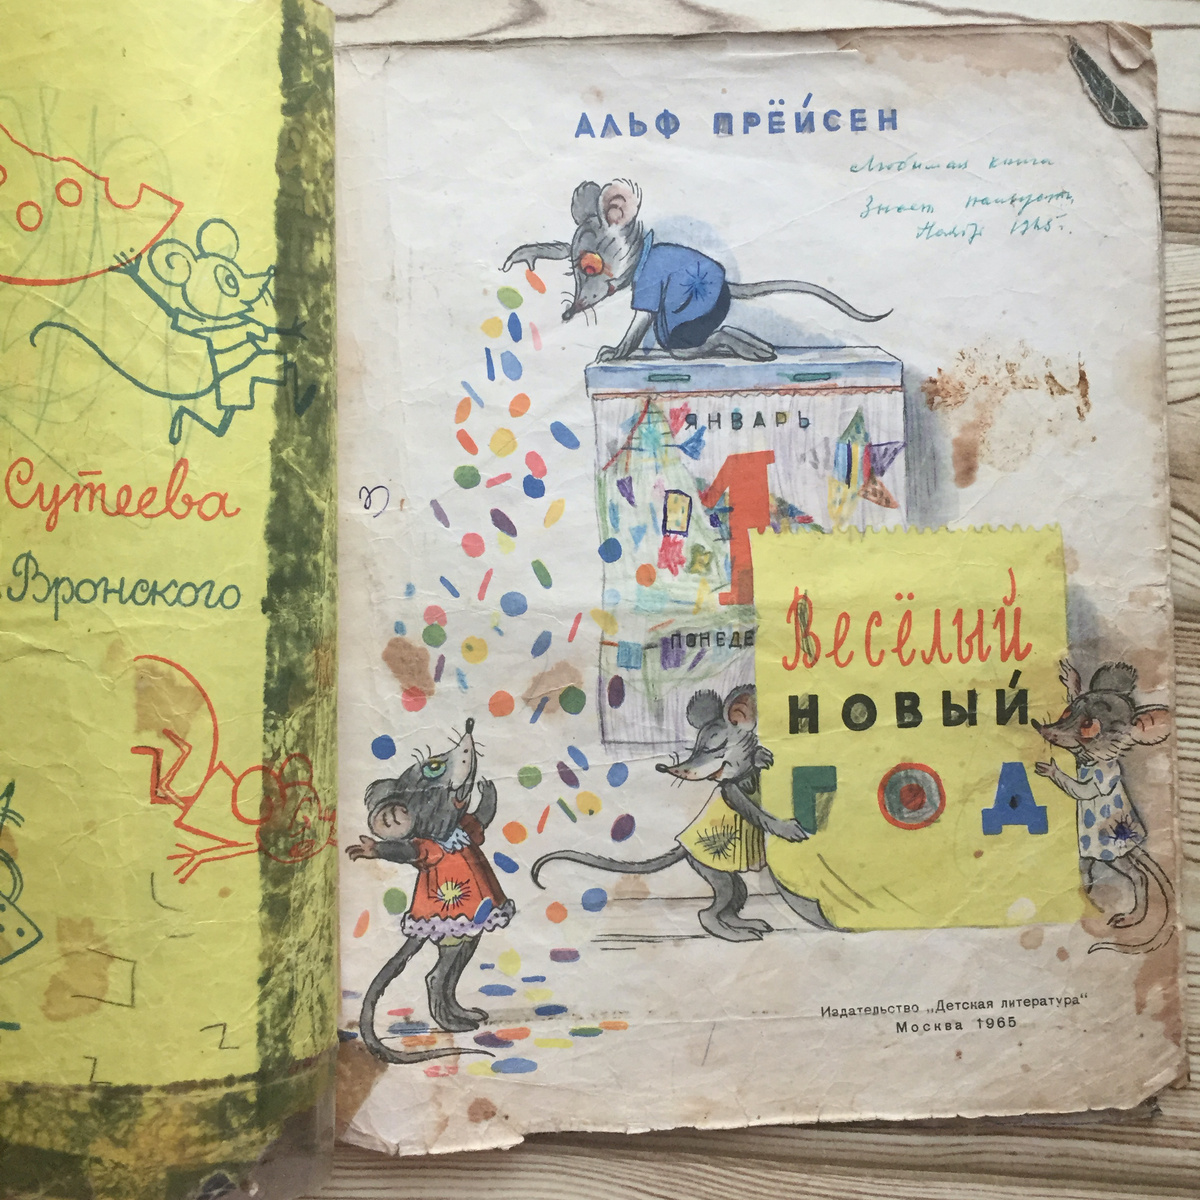 Сутеева
Вронского
АЛЬФ ПРЁЙСЕН
Любимая книга
Знает наизусть
Ноябрь 1965г.
ЯНВАРЬ
1
ПОНЕДЕ
Весёлый
НОВЫЙ
ГОД
Издательство „Детская литература“
Москва 1965